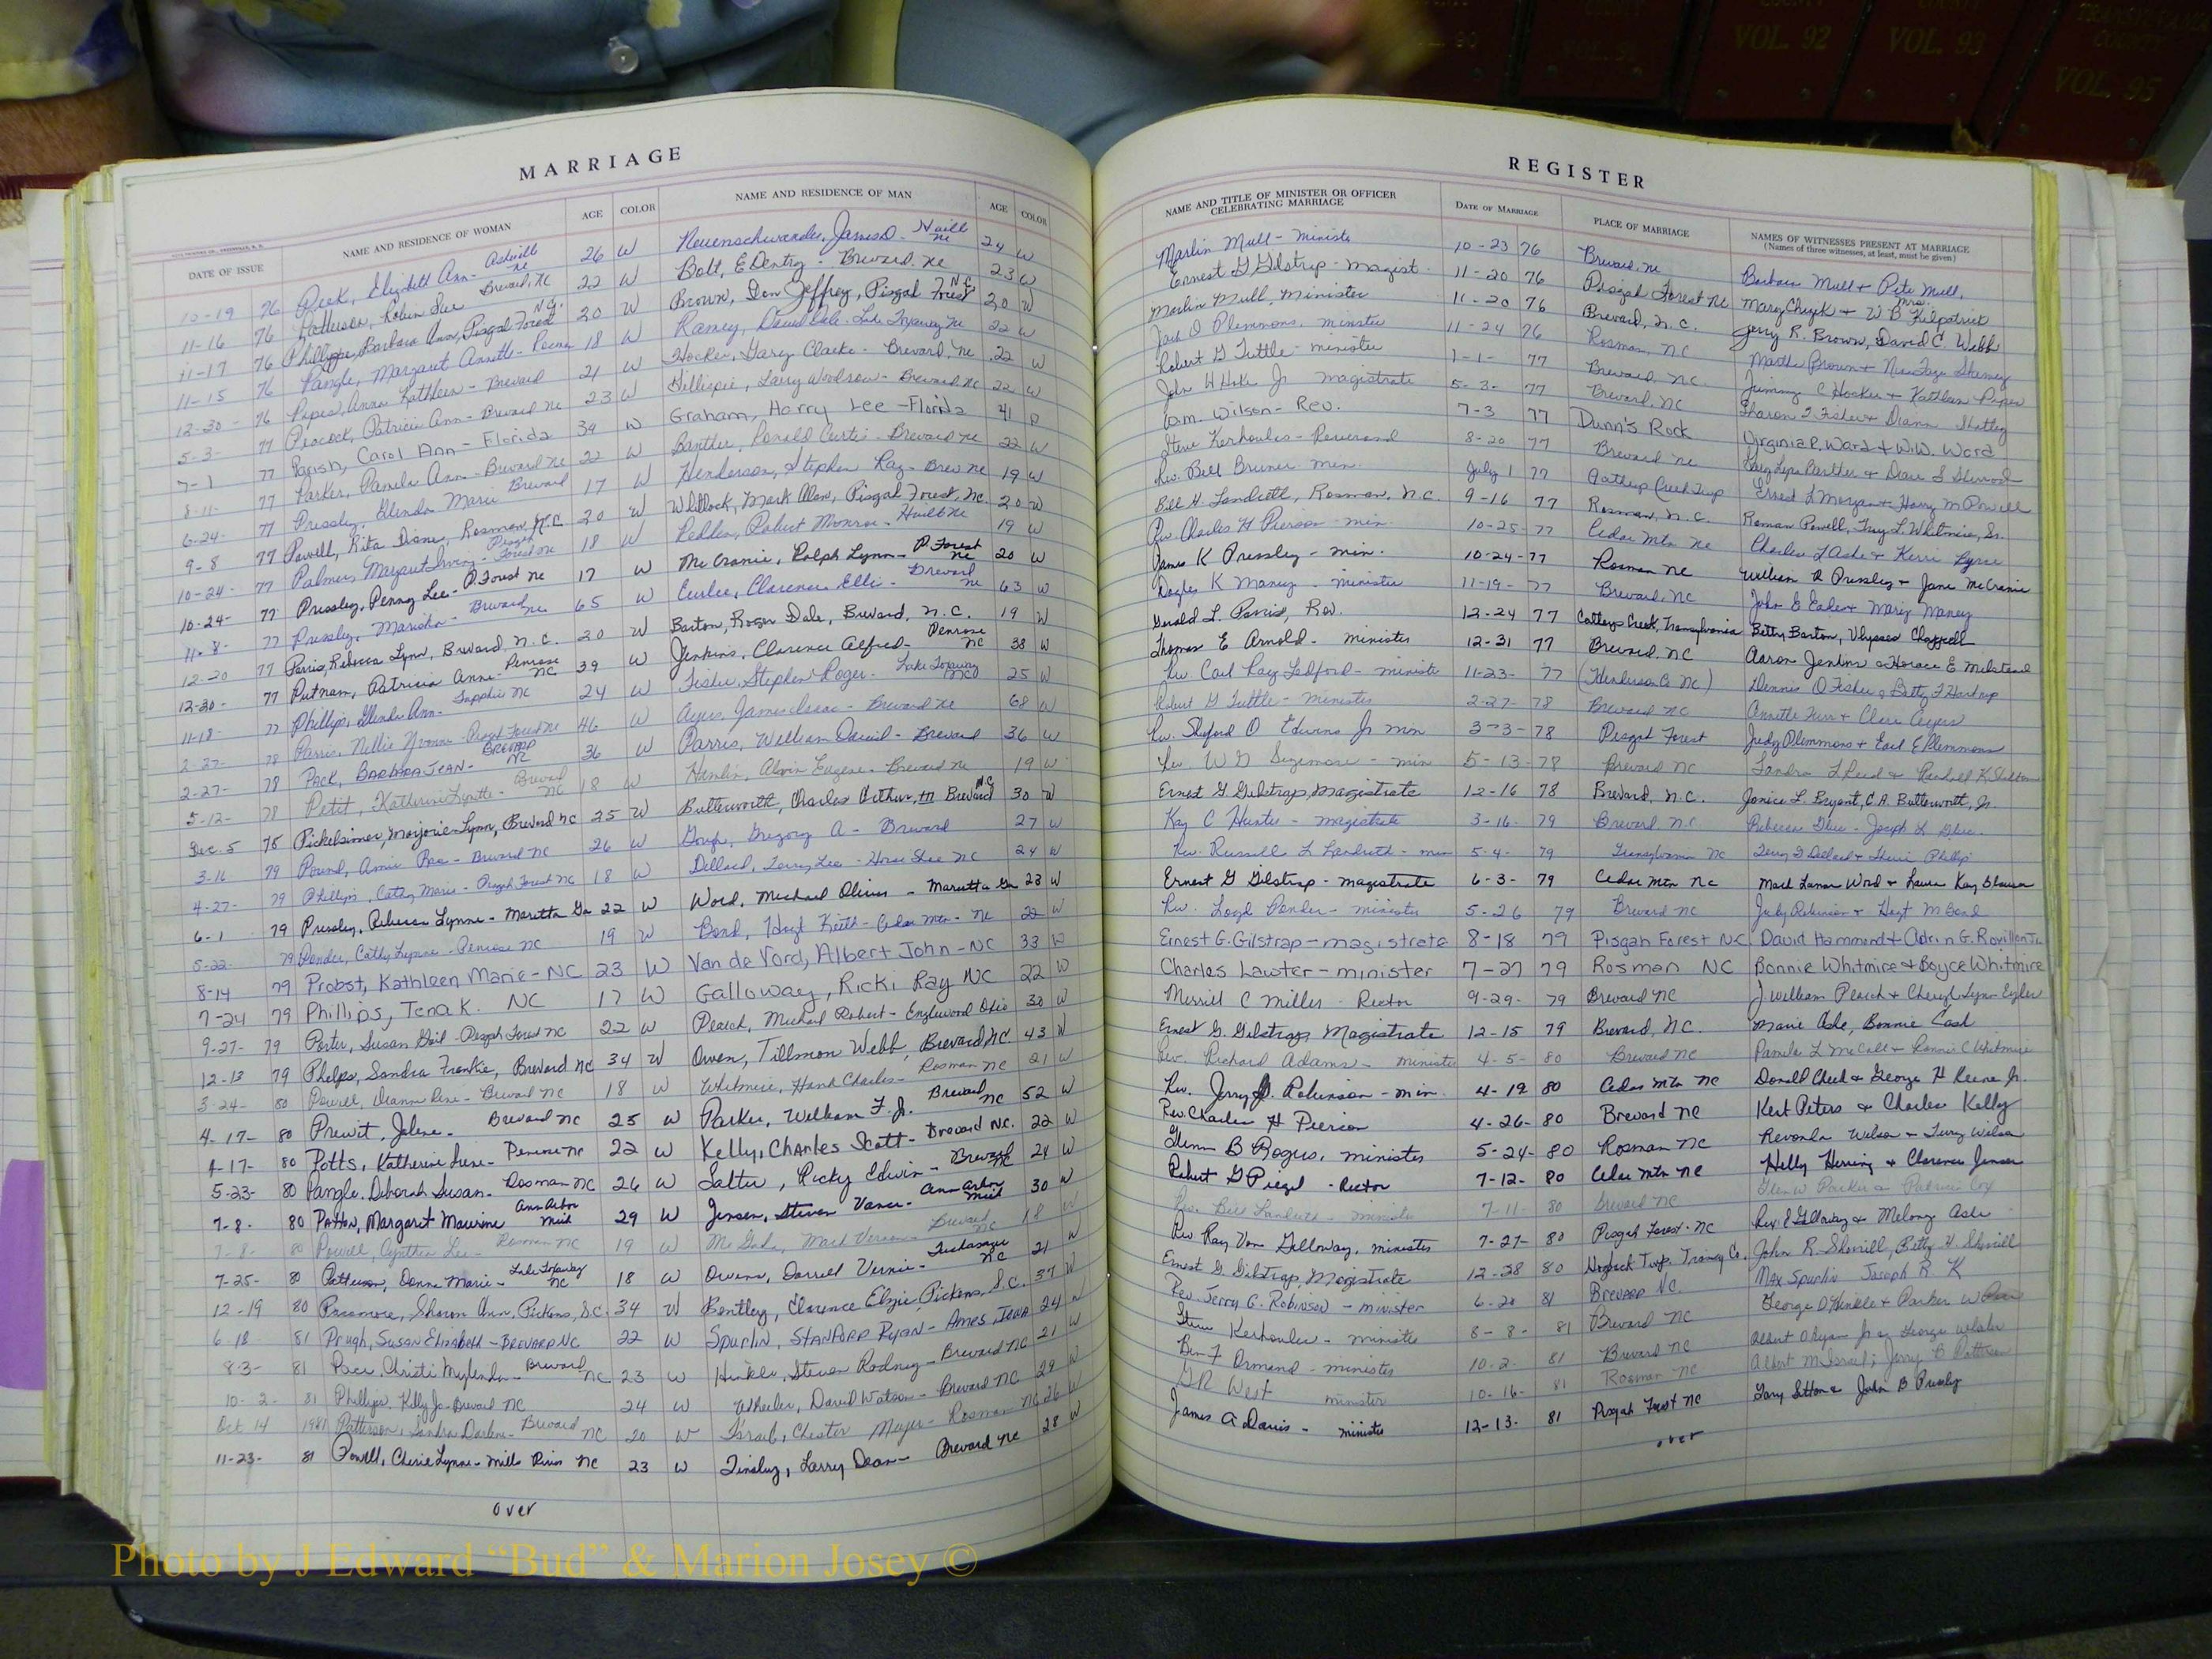 VOL. 92
VOL. 93
VOL. 95
MARRIAGE
DATE OF ISSUE NAME AND RESIDENCE OF WOMAN AGE COLOR NAME AND RESIDENCE OF MAN AGE COLOR
10-19 76 Peek, Elizabeth Ann - 26 W Neuenschwander, James D - 24 W
11-16 76 Patterson, Robin Sue Brevard, NC 22 W Bolt, E Dentry - Brevard, NC 23 W
11-17 76 Barbara Ann, Pisgah Forest N.C. 20 W Brown, Don Jeffrey, Pisgah Forest N.C. 20 W
11-15 76 Pangle, Margaret Annette - 18 W Ramey, David Dale - Lake Toxaway NC 22 W
12-30 - 76 Piper, Anna Kathleen - Brevard 21 W Hooker, Gary Clarke - Brevard, NC 22 W
5-3- 77 Peacock, Patricia Ann - Brevard NC 23 W Gillispie, Larry Woodrow - Brevard NC 22 W
7-1 77 Parish, Carol Ann - Florida 39 W Graham, Harry Lee - Florida 41
8-11- 77 Parker, Pamela Ann - Brevard NC 22 W Banther, Ronald Curtis - Brevard NC 22 W
6-24- 77 Pressley, Glenda Marie Brevard 17 W Henderson, Stephen Ray - Brev NC 19 W
9-8 77 Powell, Rita Diane, Rosman, N.C. 20 W Whitlock, Mark Alan, Pisgah Forest, NC. 20 W
10-24- 77 Palmer, Margaret Irving - Pisgah Forest NC 18 W Robert Monroe - 19 W
10-24- 77 Pressley, Penny Lee - P Forest NC 17 W McCranie, Ralph Lynn - P Forest NC 20 W
11-8- 77 Pressley, Brevard NC 65 W Curlee, Clarence Ellis - Brevard NC 63 W
12-20 77 Parris, Rebecca Lynn, Brevard, N.C. 20 W Barton, Roger Dale, Brevard, N.C. 19 W
12-30- 77 Putnam, Patricia Anne - Penrose NC 39 W Jenkins, Clarence Alfred - Penrose NC 38 W
11-18- 77 Phillips, Glenda Ann - Sapphire NC 24 W Fisher, Stephen Roger - Lake Toxaway 25 W
2-27- 78 Parris, Nellie - Pisgah Forest NC 46 W Ayers, James Isaac - Brevard NC 68 W
2-27- 78 PACK, BARBARA JEAN - BREVARD NC 36 W Parris, William David - Brevard 36 W
5-12- 78 Petit, Katherine Lynette - Brevard NC 18 W Hamlin, Alvin Eugene - Brevard NC 19 W
Dec. 5 78 Pickelsimer, Marjorie Lynn, Brevard NC 25 W Butterworth, Charles Arthur, III Brevard N.C. 30 W
3-16 79 Pound, Amie Rae - Brevard NC 26 W Gregory A - Brevard 27 W
4-27- 79 Phillips, Cathy Marie - Pisgah Forest NC 18 W Dillard, Terry Lee - Horse Shoe NC 24 W
6-1 79 Pressley, Rebecca Lynne - Maretta Ga 22 W Word, Michael Oliver - Marietta Ga 23 W
5-22- 79 Ponder, Cathy Lynne - Penrose NC 19 W Bond, Hoyt Keith - Cedar Mtn - NC 22 W
8-14 79 Probst, Kathleen Marie - NC 23 W Van de Vord, Albert John - NC 33 W
7-24 79 Phillips, Tena K. NC 17 W Galloway, Ricki Ray NC 22 W
9-27- 79 Porter, Susan Gail - Pisgah Forest NC 22 W Peach, Michael Robert - Englewood Ohio 30 W
12-13 79 Phelps, Sandra Franke, Brevard NC 34 W Owen, Tillman Webb, Brevard N.C. 43 W
3-24- 80 Powell, Deanna Rene - Brevard NC 18 W Whitmire, Hank Charles - Rosman NC 21 W
4-17- 80 Prewit, Jolene - Brevard NC 25 W Parker, William F. J. Brevard NC 52 W
4-17- 80 Potts, Katherine Irene - Penrose NC 22 W Kelly, Charles Scott - Brevard N.C. 22 W
5-23- 80 Pangle, Deborah Susan - Rosman NC 26 W Salter, Ricky Edwin - Brevard NC 24 W
7-8- 80 Patton, Margaret Maurine Ann Arbor Mich 29 W Jensen, Steven Vance - Ann Arbor Mich 30 W
7-8- 80 Powell, Cynthia Lee - Rosman NC 19 W Mark Vernon - Brevard NC 18 W
7-25- 80 Patterson, Donna Marie - Lake Toxaway NC 18 W Owens, Darrell Vernie - Tuckasegee NC 21 W
12-19 80 Passmore, Sharon Ann, Pickens, S.C. 34 W Bentley, Clarence Elzie, Pickens, S.C. 37 W
6-18 81 Prugh, Susan Elizabeth - BREVARD NC 22 W Spurlin, STANFORD RYAN - AMES IOWA 24
8-3- 81 Pace, Christi Mylinda - Brevard NC 23 W Hinkle, Steven Rodney - Brevard NC 21 W
10-2- 81 Phillips, Kelly Jo - Brevard NC 24 W Wheeler, David Watson - Brevard NC 29 W
Oct 14 1981 Patterson, Sandra Darlene - Brevard NC 20 W Israel, Chester - Rosman NC 26 W
11-23- 81 Powell, Cherie Lynne - Mills River NC 23 W Tinsley, Larry Dean - Brevard NC 28 W
over
REGISTER
NAME AND TITLE OF MINISTER OR OFFICER CELEBRATING MARRIAGE DATE OF MARRIAGE PLACE OF MARRIAGE NAMES OF WITNESSES PRESENT AT MARRIAGE
(Names of three witnesses, at least, must be given)
Marlin Mull - Minister 10-23 76 Brevard, NC Barbara Mull + Pete Mull
Ernest G Gilstrap - Magist. 11-20 76 Pisgah Forest NC Mary Cheek + Mrs. W B Kilpatrick
Marlin Mull, Minister 11-20 76 Brevard, N.C. Jerry R. Brown, David C. Webb
Jack O Plemmons, minister 11-24 76 Rosman, NC Martha Brown +
Robert G Tuttle - minister 1-1- 77 Brevard, NC. Jimmy C Hooker + Kathleen Piper
John H Hoke Jr magistrate 5-3- 77 Brevard, NC Sharon Fisher + Diann
Wm. Wilson - Rev. 7-3 77 Dunn's Rock Virginia R. Ward + W.W. Ward
Steve Kerhoulas - Reverend 8-20 77 Brevard NC
Rev. Bill Bruner Min. July 1 77 Catheys Creek Twp Ernest L Morgan + Harry M Powell
Bill H. Landreth, Rosman, N.C. 9-16 77 Rosman, N.C. Roman Powell, L. Whitmire, Sr.
Rev. Charles H Pierson - min. 10-25- 77 Cedar Mtn NC Charles L Ashe + Kerri Lyree
James K Pressley - min. 10-24-77 Rosman NC William R Pressley + Jane McCranie
Douglas K Maney - minister 11-19- 77 Brevard, NC John E Eades + Mary Maney
Gerald L. Parris, Rev. 12-24 77 Catheys Creek, Transylvania Betty Barton, Ulysses Chappell
Thomas E Arnold - minister 12-31 77 Brevard, NC Aaron Jenkins + Horace E
Rev. Carl Ray Ledford - minister 11-23- 77 (Henderson Co NC) Dennis O Fisher
Robert G Tuttle - Minister 2-27- 78 Brevard NC Annette Kerr + Clara Ayers
Rev. Sheford O Edwins Jr min 3-3-78 Pisgah Forest Judy Plemmons + Earl E Plemmons
Rev. W G Sizemore - min 5-13-78 Brevard NC Sandra L Reid
Ernest G Gilstrap, Magistrate 12-16 78 Brevard, N.C. Janice L. Bryant, C.A. Butterworth, Jr.
Kay C Hunter - magistrate 3-16- 79 Brevard, N.C. Rebecca
Rev. Russell L Landreth - min 5-4- 79 Transylvania NC Terry D Dillard + Sherri Phillips
Ernest G Gilstrap - magistrate 6-3- 79 Cedar Mtn NC Mark Lamar Word + Laura Kay
Rev. Loyd Ponder - minister 5-26 79 Brevard NC Judy Robinson + Hoyt M Bond
Ernest G. Gilstrap - magistrate 8-18 79 Pisgah Forest NC David Hammond +
Charles Lawter - minister 7-27 79 Rosman NC Bonnie Whitmire + Boyce Whitmire
Merrill C Miller - Rector 9-29- 79 Brevard NC J. William Peach + Cheryl Lynn
Ernest G. Gilstrap, Magistrate 12-15 79 Brevard, NC. Marie Ashe, Bonnie Cash
Rev. Richard Adams - minister 4-5- 80 Brevard NC Pamela L McCall + Ronnie C Whitmire
Rev. Jerry Robinson - min. 4-19 80 Cedar Mtn NC Donald Cheek + George H Keene Jr.
Rev. Charles H Pierson 4-26-80 Brevard NC Kert Peters + Charles Kelly
Glenn B Rogers, minister 5-24-80 Rosman NC Revonda Wilson + Terry Wilson
Robert G Piegel - Rector 7-12- 80 Cedar Mtn NC Holly Herring + Clarence Jensen
Rev. Bill Landreth - minister 7-11- 80 Brevard NC Glen W Parker + Patricia Cox
Rev Ray Von Galloway, minister 7-27- 80 Pisgah Forest - NC Rex E Galloway + Melony Ashe
Ernest G. Gilstrap, Magistrate 12-28 80 Hogback Twp. Transy Co. John R. Sherrill, Betty H. Sherrill
Rev. Jerry G. Robinson - minister 6-20 81 Brevard NC. Max Spurlin Joseph R K
Steve Kerhoulas - minister 8-8- 81 Brevard NC George D Hinkle + Parker W
Ben F Ormand - minister 10-2- 81 Brevard NC Albert George
G R West minister 10-16- 81 Rosman NC Albert M Israel; Jerry B Patterson
James A Davis - minister 12-13- 81 Pisgah Forest NC Gary Sitton + John B Presley
over
Photo by J Edward “Bud” & Marion Josey ©